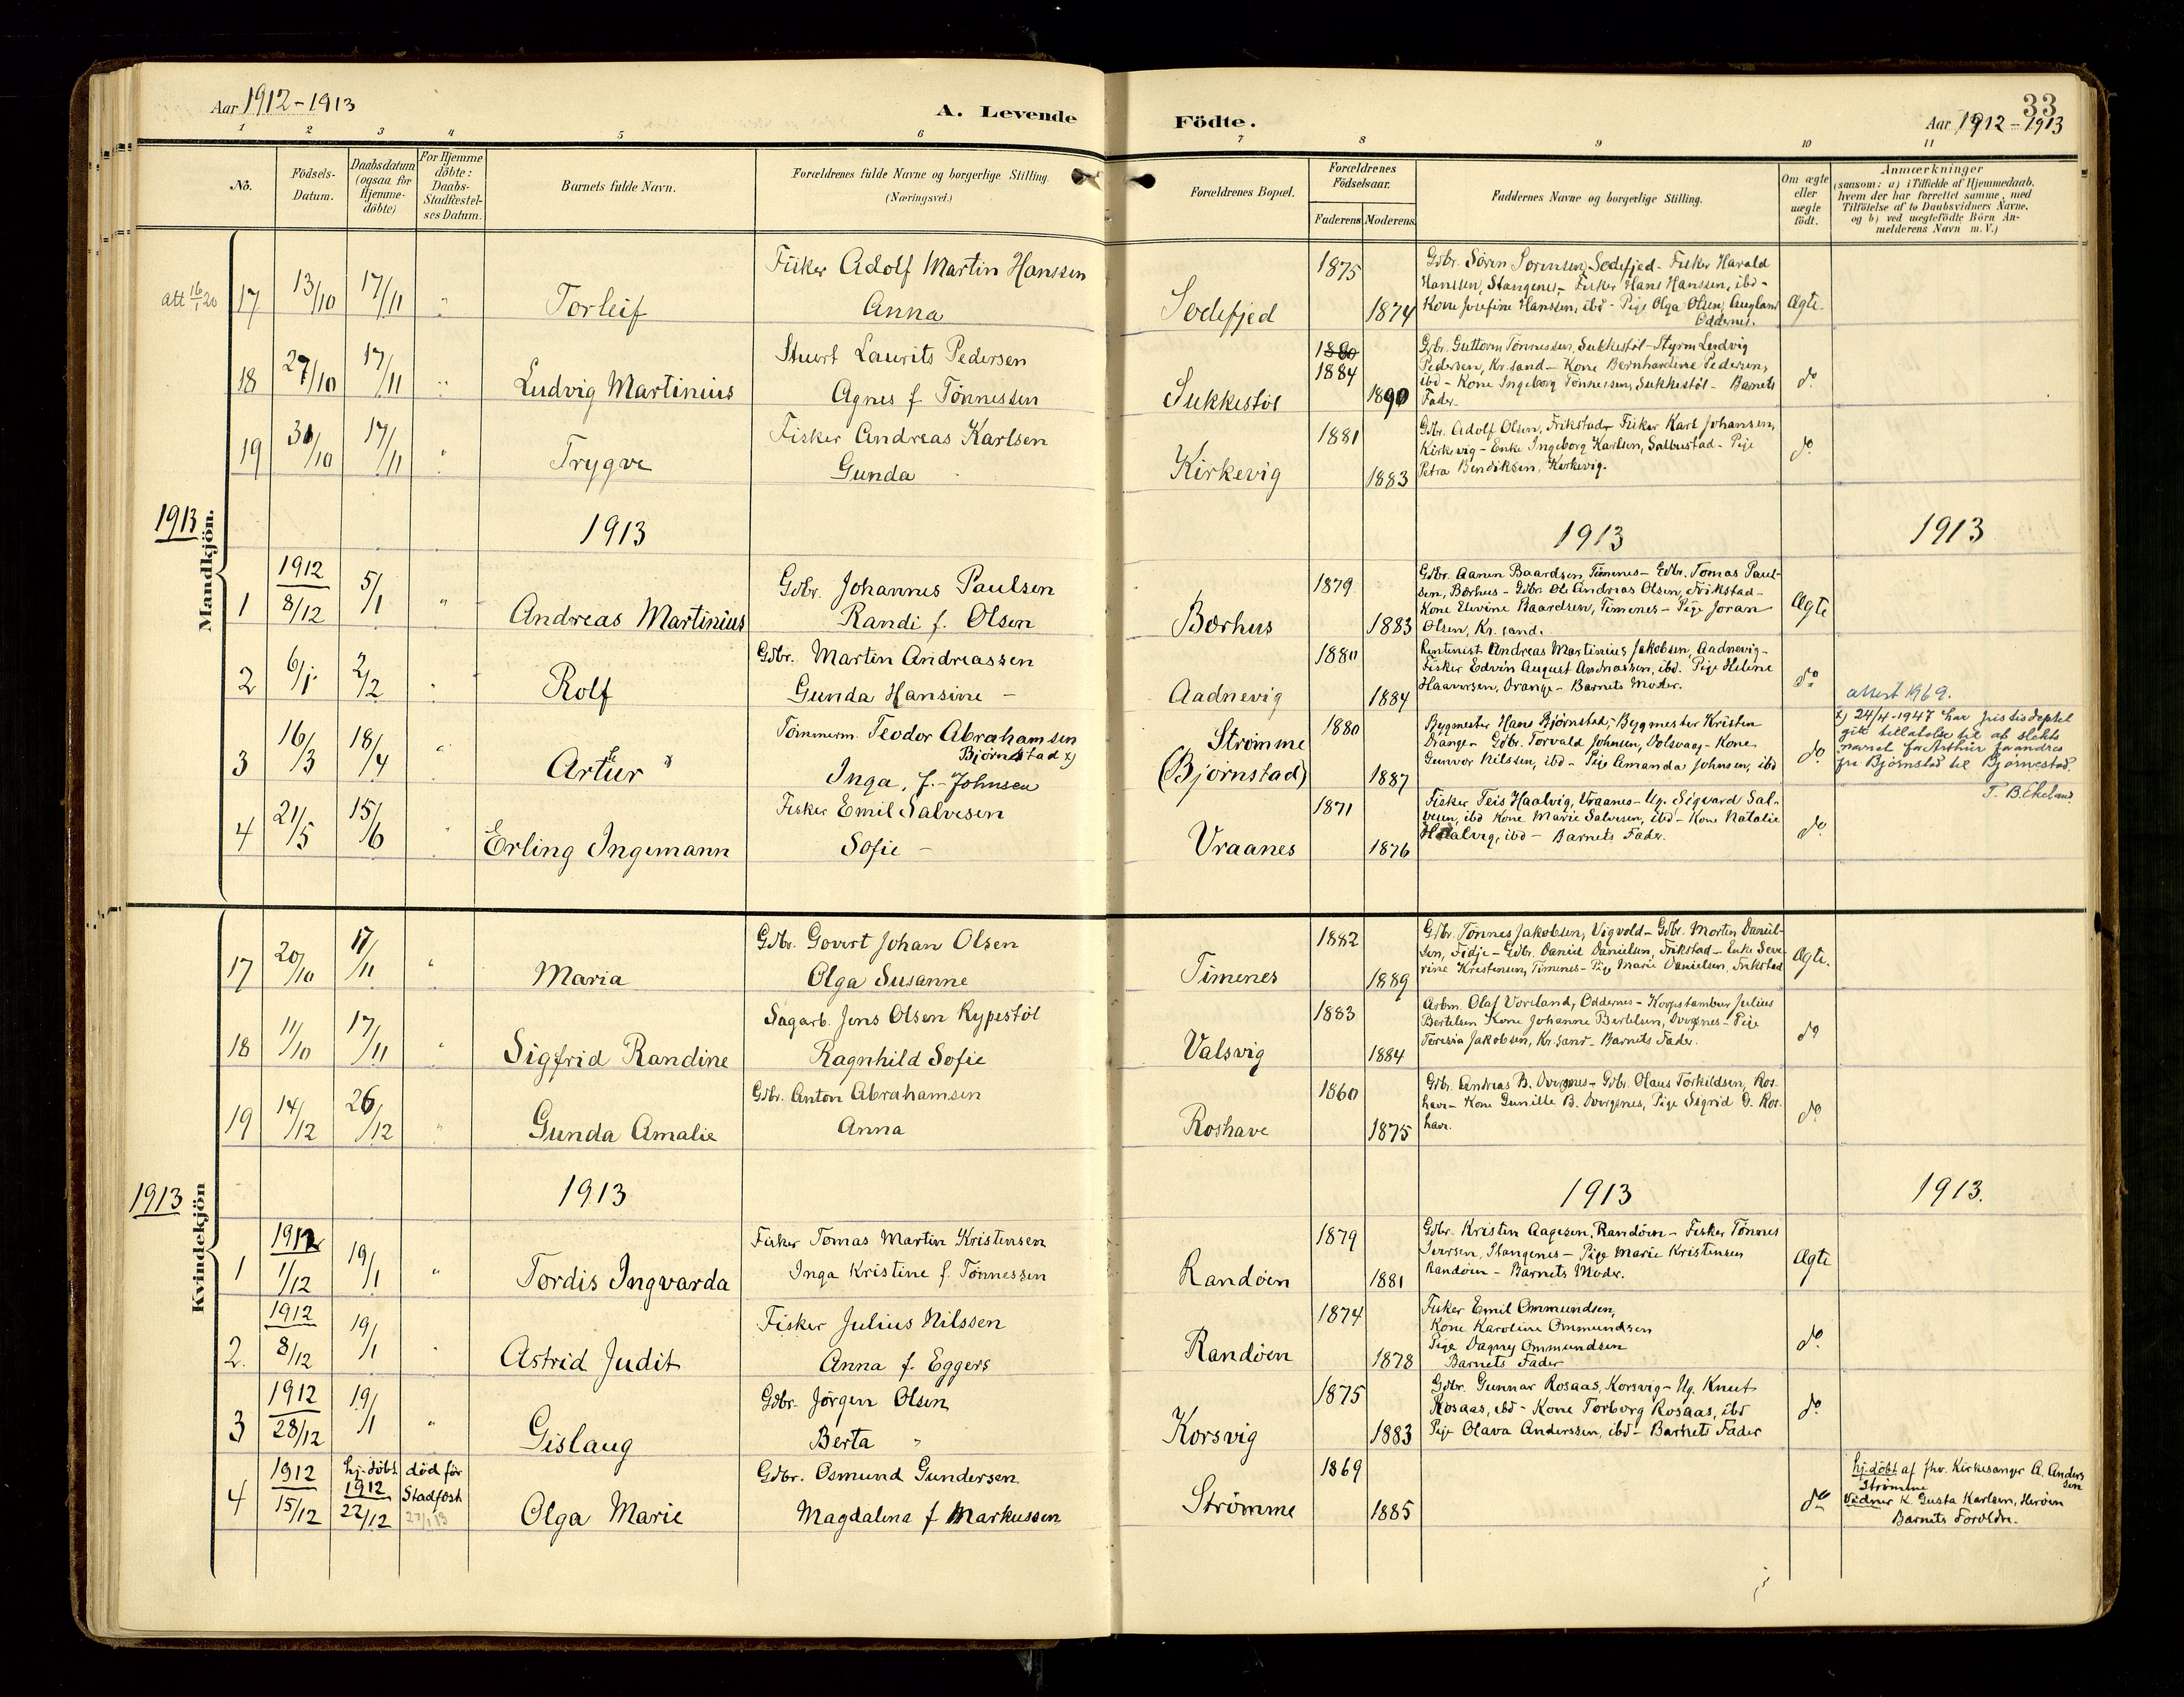 Aar 1912-1913
A. Levende
Födte.
33
Aar 1912-1913
1 2 3 4 5 6 7 8 9 10 11
No.
Födsels-
Datum.
Daabsdatum
(ogsaa for
Hjemme-
döbte)
For Hjemme
döbte:
Daabs-
Stadfæstel-
ses Datum.
Barnets fulde Navn.
Forældrenes fulde Navne og borgerlige Stilling.
(Næringsvei.)
Forældrenes Bopæl.
Forældrenes
Födselsaar.
Faderens
Moderens
Faddernes Navne og borgerlige Stilling.
Om ægte
eller
uægte
födt.
Anmærkninger
(saasom: a) i Tilfælde af Hjemmedaab,
hvem der har forrettet samme, med
Tilföielse af to Daabsvidners Navne.
og b) ved uægtefödte Börn An-
melderens Navn m. V.)
Mandkjön.
att 16/1 20
17 13/10 17/11 "
Torleif
Fisker Adolf Martin Hanssen
Anna
Sodefjed
1875
1874
Gdbr. Sören Sorensen, Sodefjed - Fisker Harald
Hanssen, Stangenes - Fisker Hans Hansen, ibd -
Kone Josefine Hanssen, ibd - Pige Olga Olsen, Augland
Oddernes.
Ægte.
18 27/10 17/11 "
Ludvig Martinius
Stuert Laurits Pedersen
Agnes f. Tönnessen
Sukkestöl
1880
1884
1890
Gdbr. Guttorm Tönnessen, Sukkestöl - Styrm Ludvig
Pedersen, Kr.sand - Kone Bernhardine Pedersen,
ibd - Kone Ingeborg Tönnessen, Sukkestöl - Barnets
Fader.
do
19 31/10 17/11 "
Trygve
Fisker Andreas Karlsen
Gunda
Kirkevig
1881
1883
Gdbr. Adolf Olsen, Frikstad - Fisker Karl Johansen,
Kirkevig - Enke Ingeborg Karlsen, Salbustad - Pige
Petra Bendiksen, Kirkevig.
do
1913
1913
1913
1913
1 1912 8/12 5/1 "
Andreas Martinius
Gdbr. Johannes Paulsen
Randi f. Olsen
Bærhus
1879
1883
Gdbr. Aanen Baardsen, Timenes - Gdbr. Tomas Paul-
sen, Bærhus - Gdbr. Ole Andreas Olsen, Frikstad -
Kone Elevine Baardsen, Timenes - Pige Joran
Olsen, Kr. sand.
Ægte
2 6/1 2/2 "
Rolf
Gdbr. Martin Andreassen
Gunda Hansine -
Aadnevig
1880
1884
Rentenist Andreas Martinius Jakobsen, Aadnevig -
Fisker Edvin August Andreassen, ibd. Pige Heline
Haavorsen, Drange - Barnets Moder.
do
3 16/3 18/4 "
Artur x
h
Tömmerm. Teodor Abrahamsen
Bjørnstad x)
Inga, f. - Johnsen
Strømme
(Bjørnstad)
1880
1887
Bygmester Hans Bjørnstad, - Bygmester Kristen
Drange - Gdbr. Torvald Johnsen, Dolsvaag - Kone
Gunvor Nilssen, ibd - Pige Amanda Johnsen, ibd
do
attest 1969.
x) 24/4-1947 har justisdeptet
gitt tillatelse til at slekts
navnet for Arthur forandres
fra Bjørnstad til Bjørnestad.
T. B. Ekeland
4 21/5 15/6 "
Erling Ingemann
Fisker Emil Salvesen
Sofie -
Vraanes
1871
1876
Fisker Teis Haalvig, Vraanes - Ug. Sigvard Sal-
vesen, ibd Kone Marie Salvesen, ibd - Kone Natalie
Haalvig, ibd - Barnets Fader.
do
Kvindekjön
17 20/10 17/11 "
Maria
Gdbr. Govert Johan Olsen
Olga Susanne
Timenes
1882
1889
Gdbr. Tönnes Jakobsen, Vigvold - Gdbr. Morten Daniel-
sen, Fidje - Gdbr. Daniel Danielsen, Frikstad - Enke Seve-
rine Kristensen, Timenes - Pige Marie Danielsen, Frikstad
Ægte.
18 11/10 17/11 "
Sigfrid Randine
Sagarb. Jens Olsen Rypestöl
Ragnhild Sofie
Valsvig
1883
1884
Arbm. Olaf Voreland, Oddernes - Korpstambur Julius
Bertelsen Kone Johanne Bertelsen, Dvergnes - Pige
Teresia Jakobsen, Kr. sand - Barnets Fader.
do
19 14/12 26/12 "
Gunda Amalie
Gdbr. Anton Abrahamsen
Anna
Roshave
1860
1875
Gdbr. Andreas B. Dvergnes - Gdbr. Olaus Torkildsen, Ros-
have - Kone Gunille B. Dvergnes, Pige Sigrid O. Ros-
have.
do
1913
1913
1913
1913.
1 1912 1/12 19/1 "
Tordis Ingvarda
Fisker Tomas Martin Kristensen
Inga Kristine f. Tönnessen
Randöen
1879
1881
Gdbr. Kristen Aagesen, Randöen - Fisker Tönnes
Iversen, Stangenes - Pige Marie Kristensen
Randöen - Barnets Moder.
Ægte
2. 1912 8/12 19/1 "
Astrid Judit
Fisker Julius Nilssen
Anna f. Eggers
Randöen
1874
1878
Fisker Emil Ommundsen,
Kone Karoline Ommundsen
Pige Dagny Ommundsen
Barnets Fader
do
3 1912 28/12 19/1 "
Gislaug
Gdbr. Jörgen Olsen
Berta "
Korsvig
1875
1883
Gdbr. Gunnar Rosaas, Korsvig - Ug. Knut
Rosaas, ibd - Kone Torborg Rosaas, ibd
Pige Olava Anderssen, ibd - Barnets Fader
do
4 1912 15/12
hj. döbt 1912 22/12
död för
Stadfæst
Olga Marie
Gdbr. Osmund Gundersen
Magdalena f Markussen
Strömme
1869
1885
do
hj. döbt af fhv. Kirkesanger A. Anders
sen
Strömme
Vidner K. Gusta Karlsen, Heröen
Barnets Forældre.